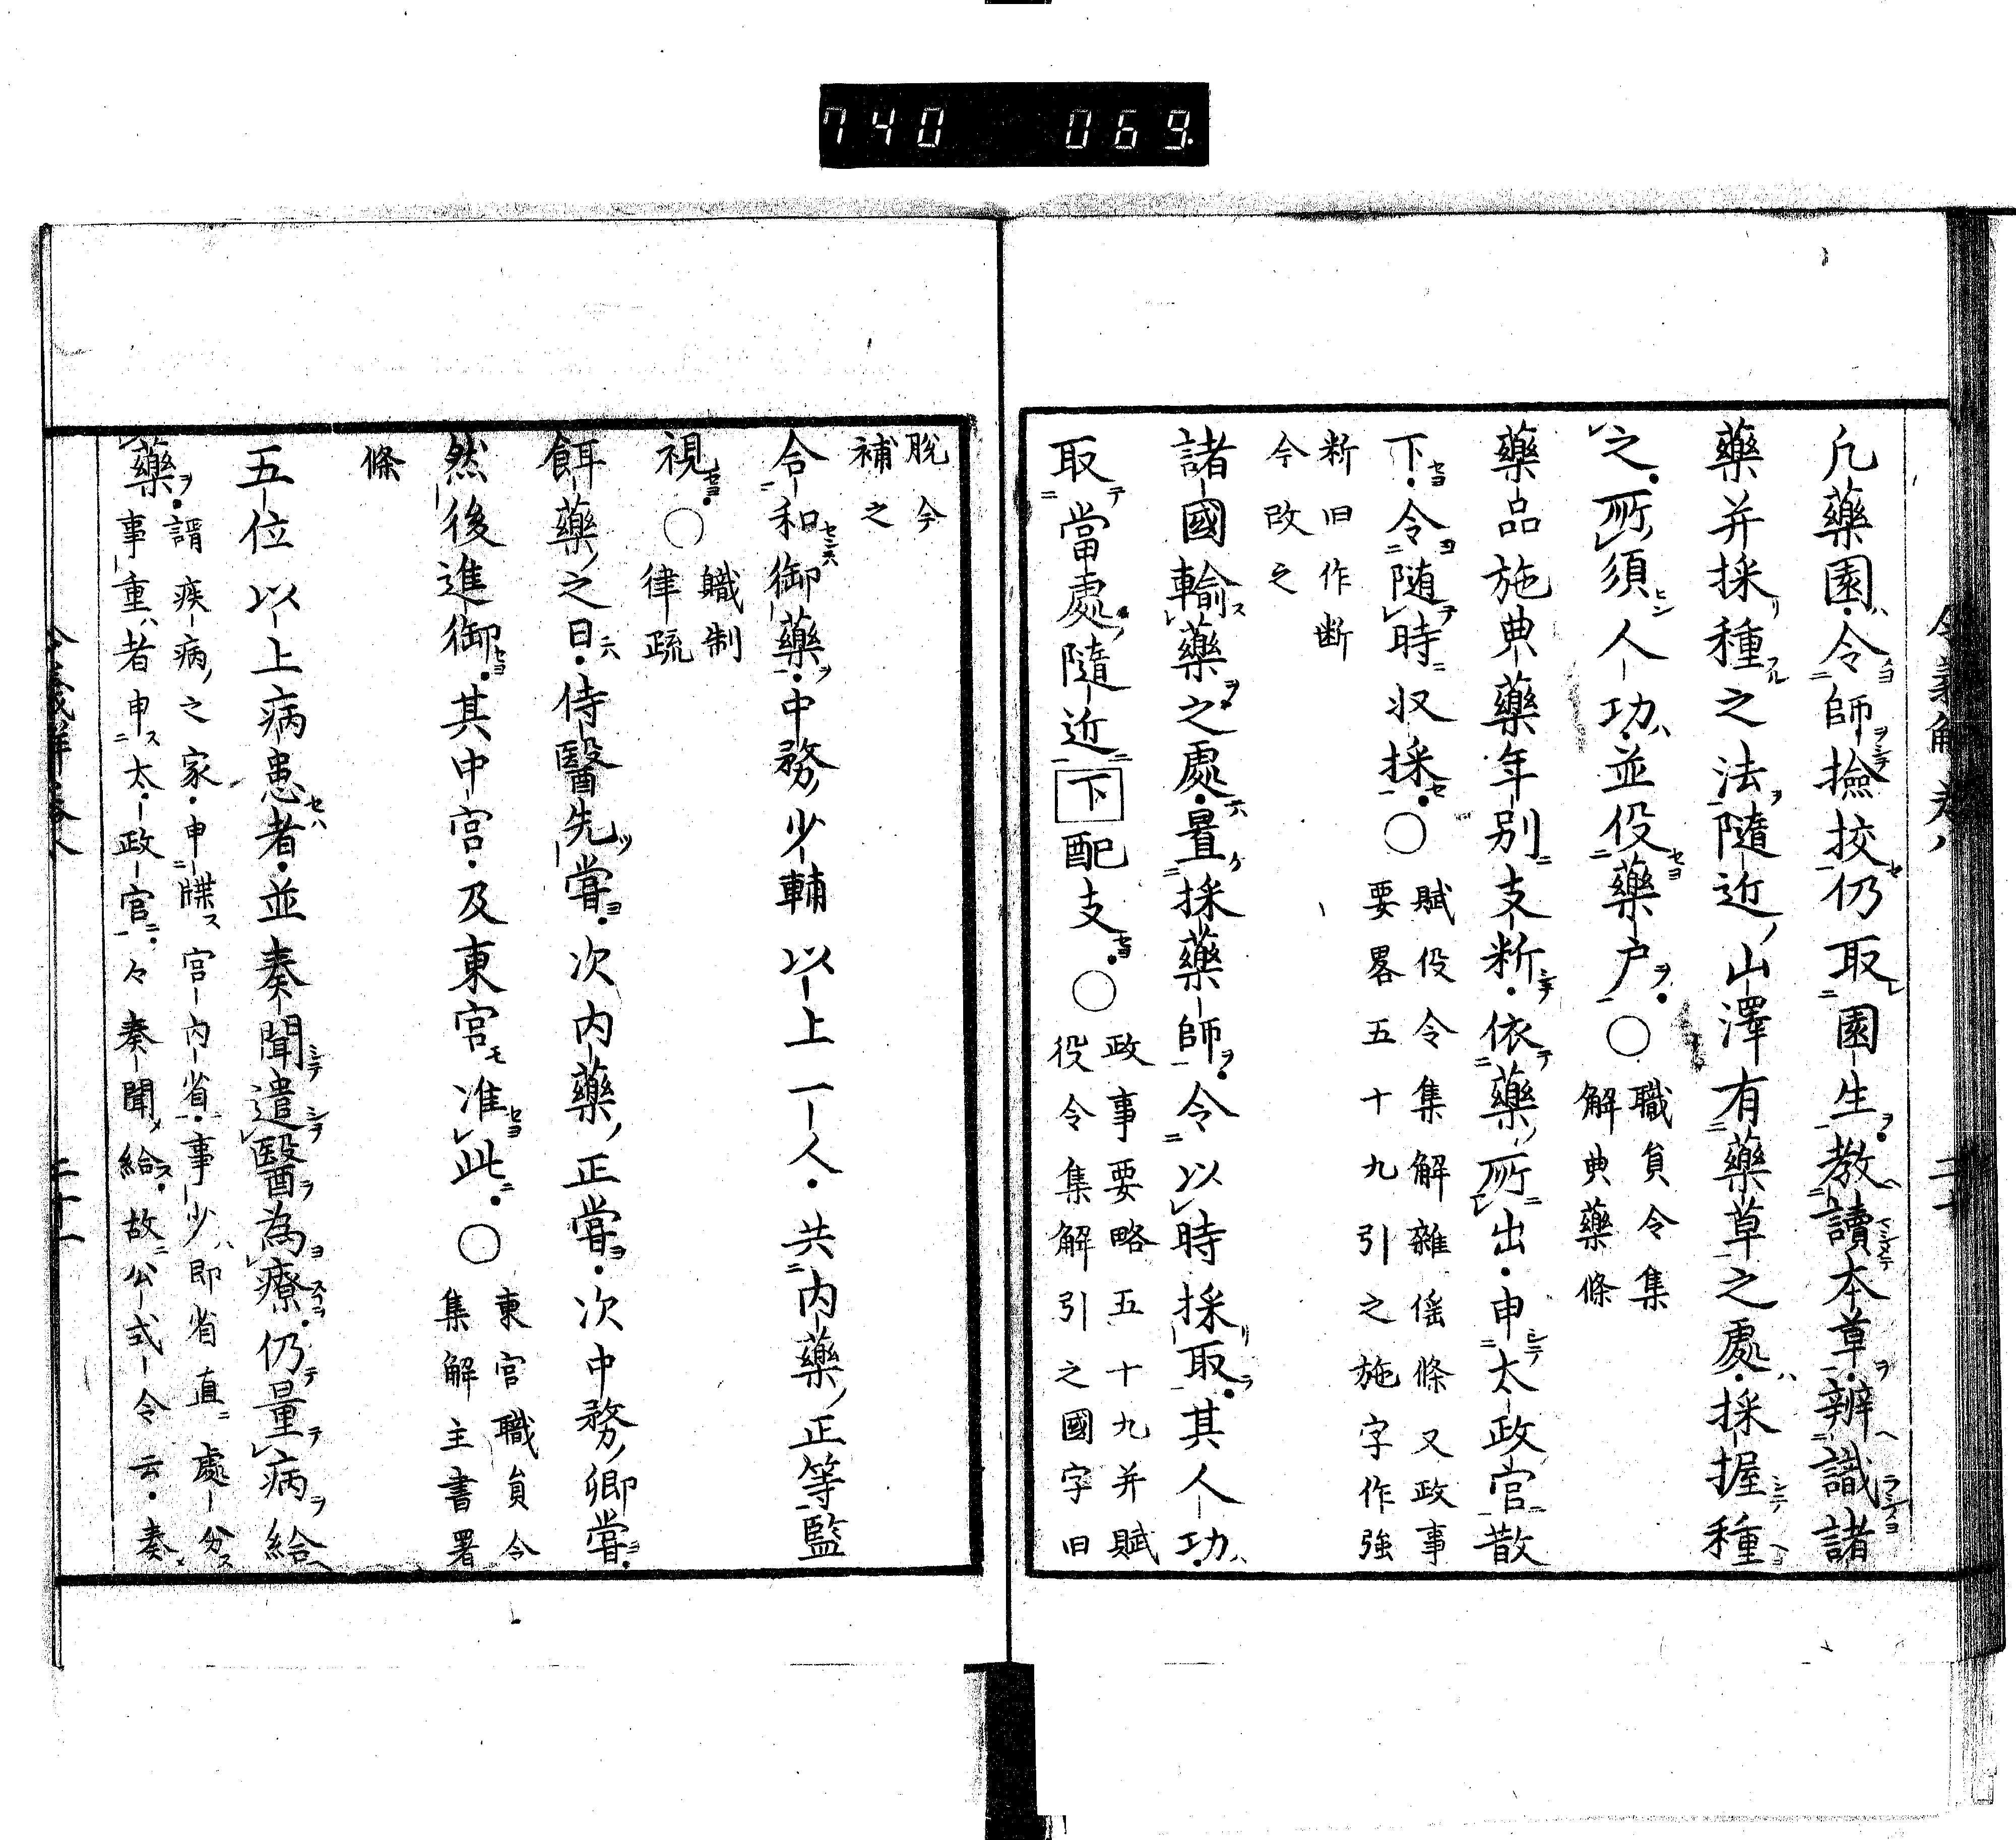 740 069
凡藥園令師撿挍仍取園生教讀本草辨識諸
藥并採種之法隨近山澤有藥草之處採握種
之所須人功並役藥户○職員令集
解典藥條
藥品施典藥年別支斷依藥所出申太政官散
下令随時収採○賦役令集解雜徭條又政事
要畧五十九引之施字作強
断旧作断
今改之
諸國輸藥之處置採藥師令以時採取其人功
取當處隨近下配支○政事要略五十九并賦
役令集解引之國字旧
脫今
補之
合和御藥中務少輔以上一人共内藥正等監
視○職制
律疏
餌藥之日侍醫先嘗次内藥正嘗次中務卿嘗
然後進御其中宮及東宮准此○東宮職員令
集解主書署
條
五位以上病患者並奏聞遣醫為療仍量病給
藥謂疾病之家申牒宮内省事少即省直處分
事重者申太政官々奏聞給故公式令云奏